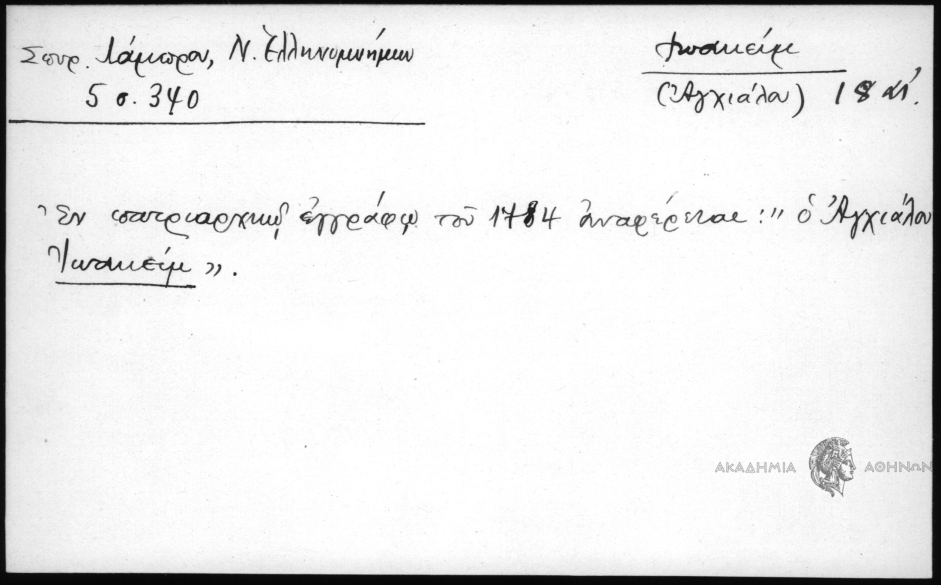 Σπυρ. Λάμπρου, Ν. Ἑλληνομνήμων
5 σ. 340
Ἰωακείμ
(Ἀγχιάλου) 18 αἰ.
Ἐν πατριαρχικῷ ἐγγράφῳ τοῦ 1784 ἀναφέρεται: " ὁ Ἀγχιάλου
Ἰωακείμ ».
ΑΚΑΔΗΜΙΑ ΑΘΗΝΩΝ